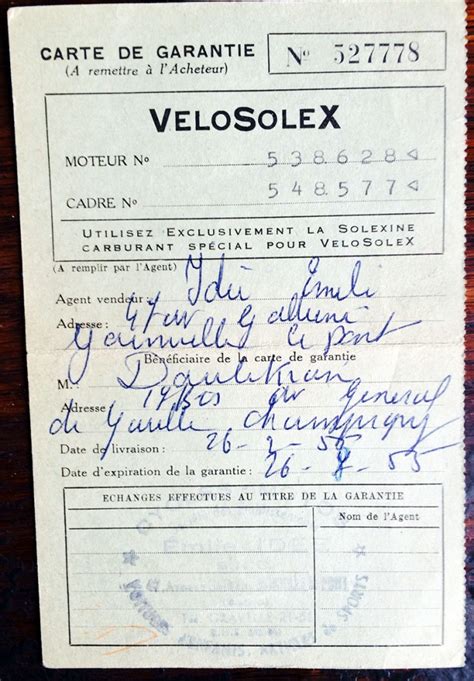 CARTE DE GARANTIE
(A remettre à l'Acheteur)
No 527778
VELOSOLEX
MOTEUR No 538.628
CADRE No 548577
UTILISEZ EXCLUSIVEMENT LA SOLEXINE
CARBURANT SPÉCIAL POUR VELOSOLEX
(A remplir par l'Agent)
Agent vendeur : Idée Emile
Adresse : 47 av Gallieni
le pont
Bénéficiaire de la carte de garantie
M.
Adresse 19 Bis av General
de Gaulle Champigny
Date de livraison : 26-2-55
Date d'expiration de la garantie : 26-8-55
ECHANGES EFFECTUES AU TITRE DE LA GARANTIE
Nom de l'Agent
CY
Emile IDEE
& SPORTS